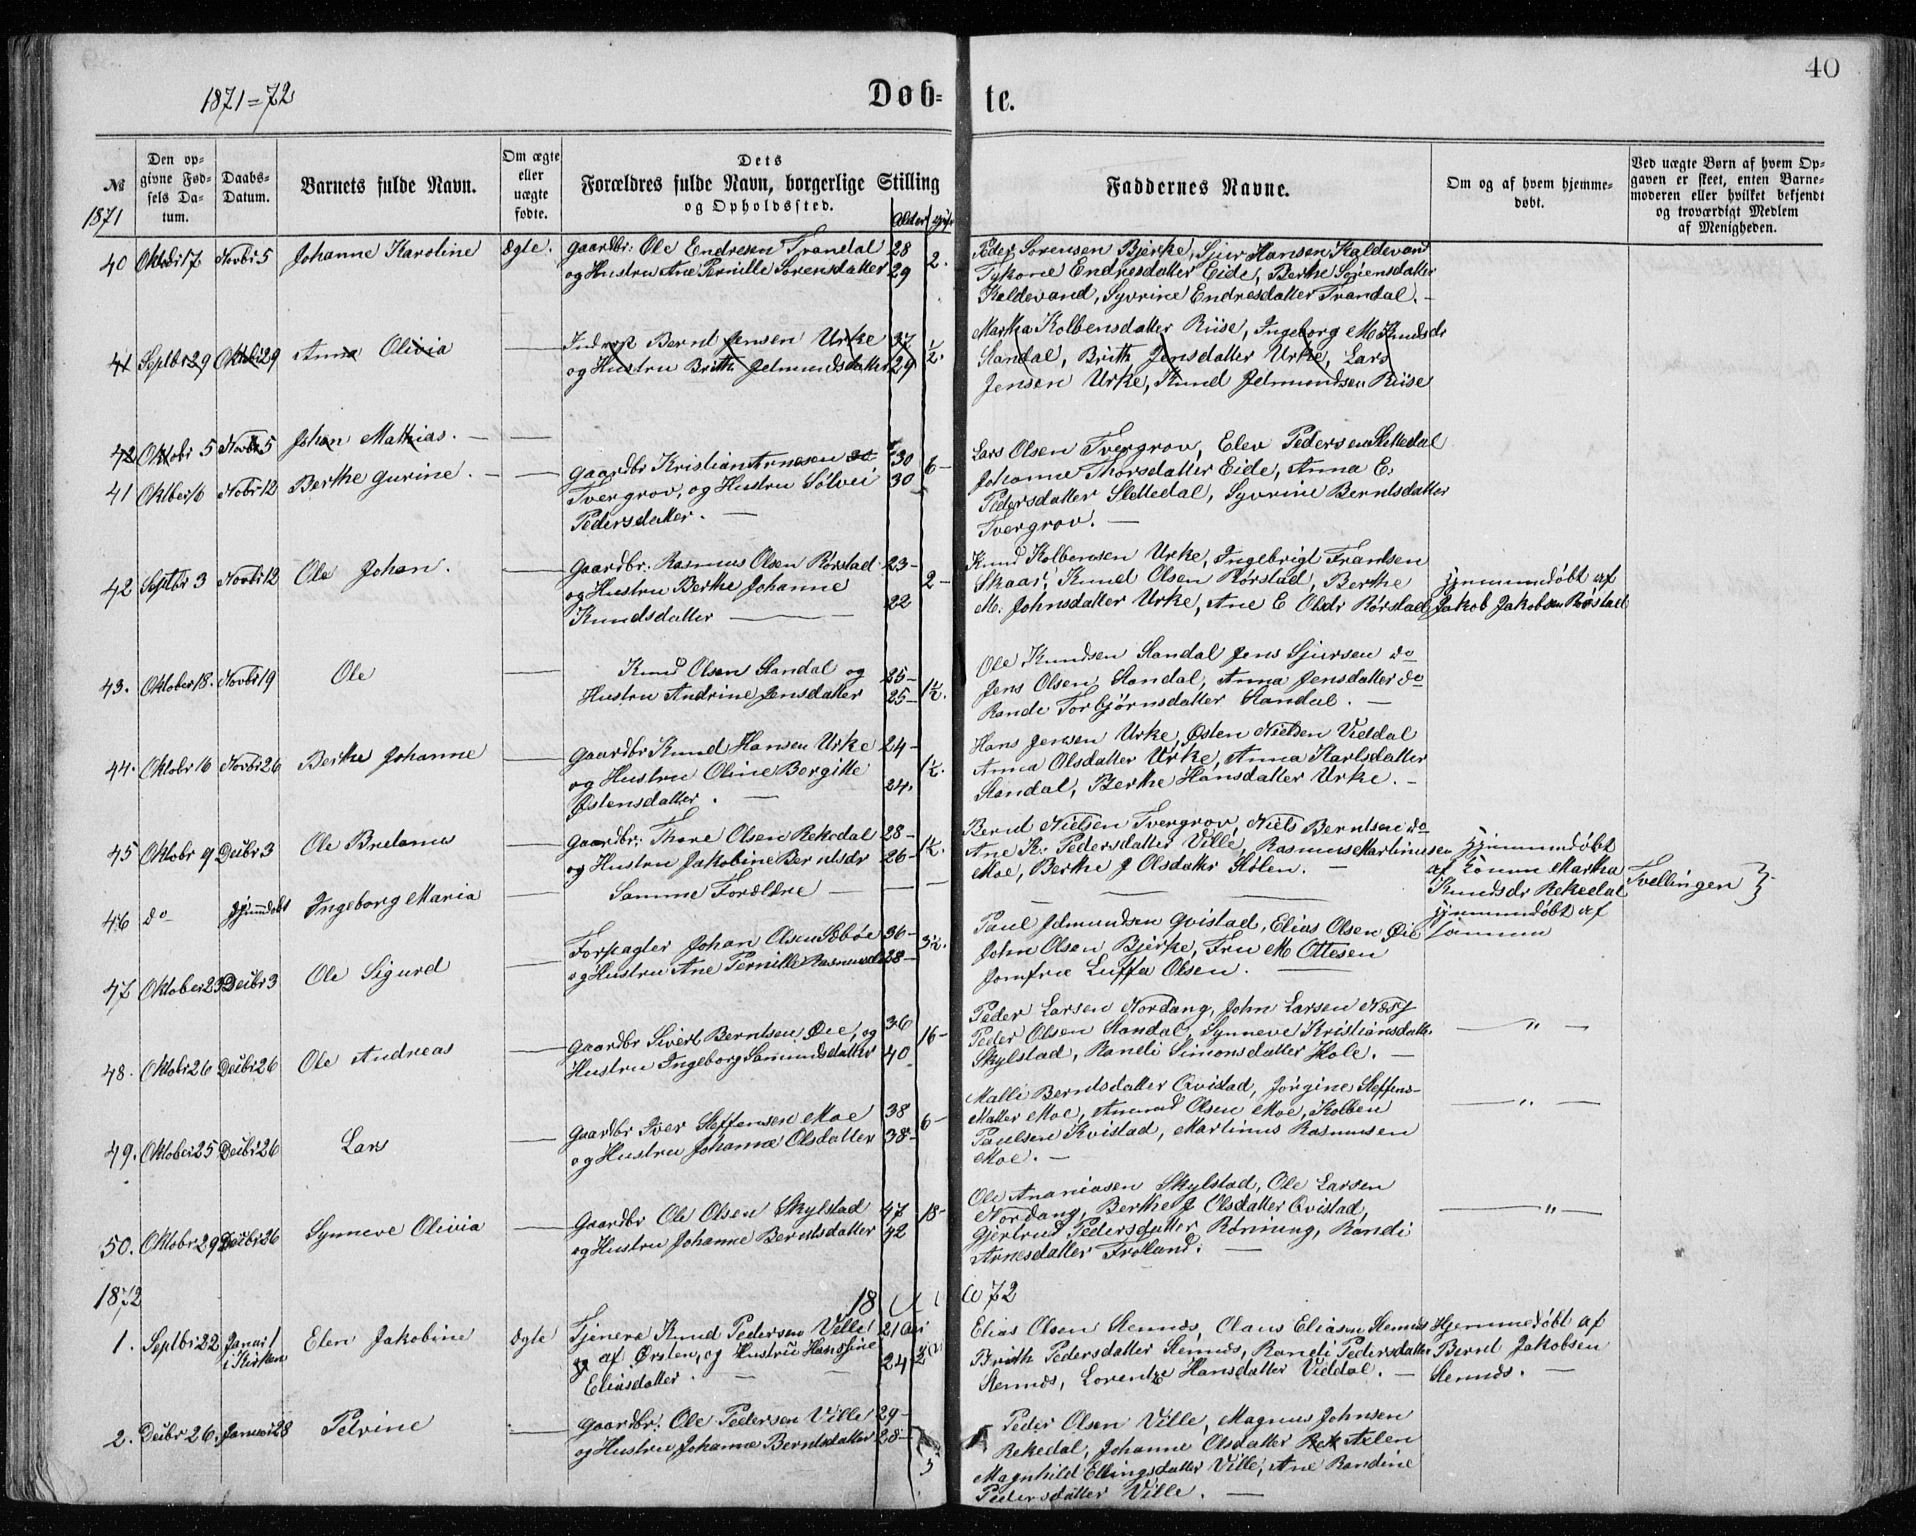 40
1871=72
Døb-te.
№
Den opgivne Fødsels Datum.
Daabs-Datum.
Barnets fulde Navn.
Om ægte eller uægte fødte.
Dets Forældres fulde Navn, borgerlige Stilling og Opholdssted.
Alder
Faddernes Navne.
Om og af hvem hjemmedøbt.
Ved uægte Børn af hvem Opgaven er skeet, enten Barnemoderen eller hvilket bekjendt og troværdigt Medlem af Menigheden.
1871
40 Oktobr 17 Novbr 5 Johanne Karoline Ægte. Gaardbr: Ole Endresen Trandal 28 2. Peder Sørensen Bjerke, Sjur Hansen Kaldevand
og Hustru Ane Pernille Sørensdatter 29 Endresdatter Eide, Berthe Sørensdatter
Kaldevand, Syvrine Endresdatter Trandal. —
41 Septbr 29 Oktobr 29 Anna Olivia Bernt Jensen Urke 27 ½. Martha Kolbensdatter Riise, Ingeborg M. Knudsdr
og Hustru Brith Jelmundsdatter 29 Standal, Brith Jensdatter Urke, Lars
Jensen Urke, Knud Jelmundsen Riise
42 Oktobr 5 Novbr 5 Johan Mathias. — —
41 Oktber 16 Nobr 12 Berthe Gurine. — Gaardbr Kristian Arnesen 30 6- Lars Olsen Tvergrov, Elev Pedersen Slettedal
Tvergrov, og Hustru Sølvei 30 Johanne Thorsdatter Eide, Anna E.
Pedersdatter. — Pedersdatter Slettedal, Syvrine Berntsdatter
Tvergrov. —
42 Septbr 3 Novbr 12 Ole Johan. — Gaardbr: Rasmus Olsen Rørstad 23- 2- Knud Kolbensen Urke, Ingebrigt Frantsen
og Hustru Berthe Johanne Skaar, Knud Olsen Rørstad, Berthe hjemmedøbt af
Knudsdatter — 22 M. Johnsdatter Urke, Ane E Olsdr Rørstad, Jakob Jakobsen Rørstad
43. Oktober 18. Novbr 19 Ole — Knud Olsen Standal og 25- 1½. Ole Knudsen Standal Jens Sjursen do
Hustru Andrine Jensdatter 25- Jens Olsen Standal, Anna Jensdatter do
Rande Torbjørnsdatter Standal. —
44. Oktobr 16 Novbr 26 Berthe Johanne — Gaardbr Knud Hansen Urke 24- 1½. Hans Jensen Urke, Østen Nielsen Viddal
og Hustru Oline Bergitte Anna Olsdatter Urke, Anna Karlsdatter
Østensdatter. — 24. Standal, Berthe Hansdatter Urke. —
45 Oktobr 9 Decbr 3 Ole Bretanus — Gaardbr: Thore Olsen Rekedal 28- 1½. Bernd Nielsen Tvergrov, Niels Berntsen do
og Hustru Jakobine Berntsdr 26- Ane K. Pedersdatter Ville, Rasmus Martinusen hjemmedøbt
Moe, Berthe J Olsdatter Stølen. — af Martha
46 do hjemmdøbt Ingeborg Maria — Samme Forældre — — — Knudsdr Rekedal Tvellinger }
hjemmedøbt af
samme
47 Oktober 23 Decbr 3 Ole Sigurd — Forpagter Johan Olsen Sæbøe 36- 3½. Paul Jelmundsen Qvistad, Elias Olsen Øie
og Hustru Ane Pernille Rasmusdr 28- John Olsen Bjerke, Fru M Ottesen
Jomfru Olsen. —
48. Oktobr 26 Decbr 26 Ole Andreas — Gaardbr Sivert Berntsen Øie, og 36 16- Peder Larsen Nordang, John Larsen
Hustru Ingeborg Samundsdatter 40 Peder Olsen Standal, Synneve Kristiansdatter — „ —
Skylstad, Randi Simonsdatter Hole. —
49. Oktober 25 Decbr 26 Lars — Gaardbr Iver Steffensen Moe 38 6- Malli Berntsdatter Qvistad, Jørgine Steffens-
og Hustru Johanne Olsdatter 38- datter Moe, Amund Olsen Moe, Kolben — „ —
Paulsen Kvistad, Martinus Rasmusen
Moe. —
50. Oktobr 29 Decbr 26 Synneve Olivia — Gaardbr Ole Olsen Skylstad 47 18- Ole Ananiasen Skylstad, Ole Larsen
og Hustru Johanne Berntsdatter 42 Nordang, Berthe J Olsdatter Qvistad, — „ —
Gjertrud Pedersdatter Rønning, Randi
Arnesdatter Trolland. —
1872 18 72
1. Septbr 22 Januar 1 i Kirken Elen Jakobine Ægte Tjener Knud Pedersen Ville 21 Elias Olsen Stennes, Claus Eliasen Stennes Hjemmedøbt af
af Ørsten, og Hustru Hansine 24 Brith Pedersdatter Stennes, Randi Pedersdatter Bernt Jakobsen
Eliasdatter. — Stennes, Lorentze Hansdatter Viddal. — Stennes. —
2. Decbr 26. Januar 28 Petrine — Gaardbr: Ole Pedersen Ville 29- 3 Peder Olsen Ville, Magnus Johnsen
og Hustru Johanne Berntsdatter 28- Rekedal, Johanne Olsdatter Aklen
Magnhild Ellingsdatter Ville, Ane Randine
Pedersdatter Ville. —